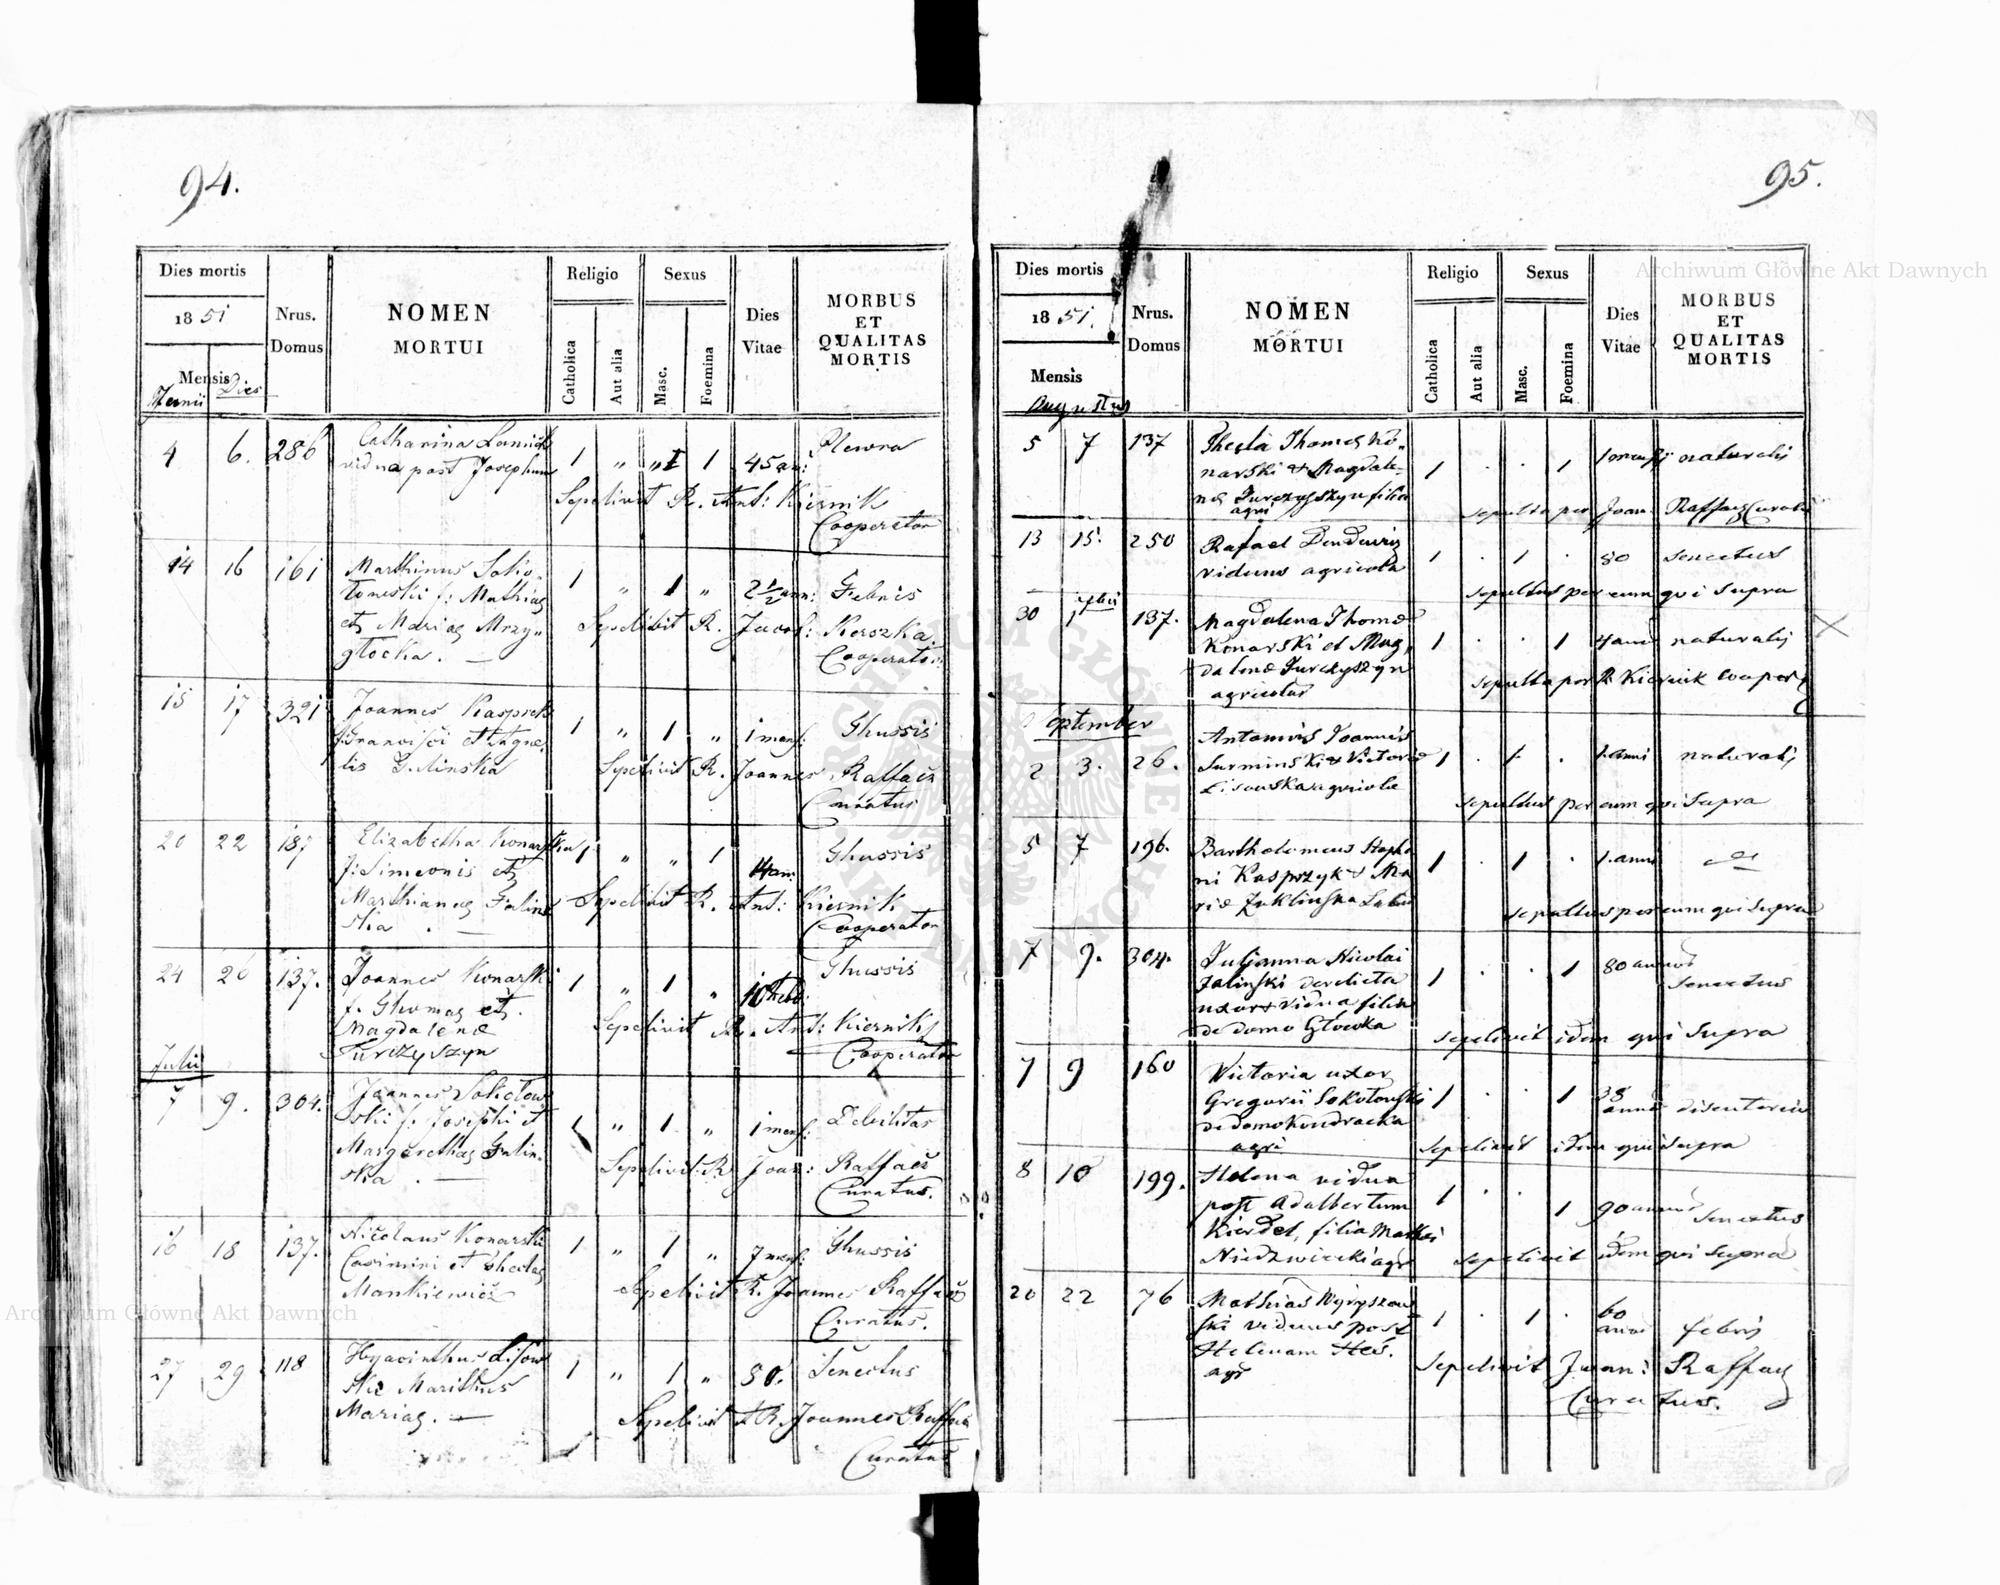 94.
Dies mortis
1851
Mensis
Junii Dies
Nrus.
Domus
NOMEN
MORTUI
Religio
Catholica
Aut alia
Sexus
Masc.
Foemina
Dies
Vitae
MORBUS
ET
QUALITAS
MORTIS
4 6. 286 Catharina
vidua post Josephum 1 " " 1 45 an: Plewra
Sepelivit R. Ant: Kiernik
Cooperator
14 16 161 Marthinus Soko-
łowski f: Mathiae
et Mariae Mrzy-
głocka. 1 " 1 " 2 1/2 ann: Febris
Sepelivit R. Jacob:
Cooperator
15 17 321 Joannes
f: Francisci et Agne-
tis 1 " 1 " 1 mens: Thussis
Sepelivit R. Joannes Raffacz
Curatus
20 22 187 Elizabetha Konarska
f: Simeonis et
Marthianae Falin-
ska 1 " " 1 14 an: Thussis
Sepelivit R. Ant: Kiernik
Cooperator
24 26 137. Joannes Konarski
f. Thomae et
Magdalenae
Jurczyszyn 1 " 1 " Thussis
Sepelivit R. Ant: Kiernik
Cooperator
Julii
7 9. 304. Joannes
ski f. Josephi et
Margarethae Falin-
ska. 1 " 1 " 1 mens: Debilitas
Sepelivit R Joan: Raffacz
Curatus.
16 18 137. Nicolaus Konarski
Casimiri et Theclae
Mankiewicz 1 " 1 " 7 mens: Thussis
Sepelivit R. Joannes Raffacz
Curatus.
27 29 118 Hyacinthus Lisow
ski Marithus
Mariae. 1 " 1 " 80. Senectus
Sepelivit R. Joannes Raffacz
Curatus
95.
Dies mortis
1851.
Mensis
Augustus
Nrus.
Domus
NOMEN
MORTUI
Religio
Catholica
Aut alia
Sexus
Masc.
Foemina
Dies
Vitae
MORBUS
ET
QUALITAS
MORTIS
5 7 137 Thecla Thomae Ko-
narski & Magdale-
nae Jurczyszyn filia
agri 1 . . 1 naturalis
sepulta per Joan: Raffacz Curatus
13 15. 250 Rafael
viduus agricola 1 . 1 . 80 senectus
sepultus per eum qui supra
30 1 137. Magdalena Thomae
Konarski et Mag-
dalenae Jurczyszyn
agricolas 1 . . 1 naturalis
sepulta per R Kiernik Cooper
September
2 3. 26. Antonius Joannis
Surminski & Victoriae
Lisouska agricolae 1 . 1 . 1. anni naturalis
sepultus per eum qui supra
5 7 196. Bartholomeus Stepha
ni Kasprzyk & Ma
riae Zuklinska 1 . 1 . 1. anni
sepultus per eum qui supra
7 9. 304. Julianna Nicolai
Falinski derelicta
uxor & vidua filia
de domo Głowka 1 . . 1 80 annos senectus
sepelivit idem qui supra
7 9 160 Victoria uxor
Gregorii Sokołouski
de domo Kondracka
agri 1 . . 1 38
annos disenteria
sepelivit idem qui supra
8 10 199. Helena vidua
post Adalbertum
Kierdel, filia
Niedzwiecki agr 1 . . 1 90 annos senectus
sepelivit idem qui supra
20 22 76 Mathias
ski viduus post
Helenam
agr 1 . 1 . 60
annos febris
Sepelivit Joan: Raffacz
Curatus.
Archiwum Główne Akt Dawnych
Archiwum Główne Akt Dawnych
ARCHIWUM GŁÓWNE AKT DAWNYCH